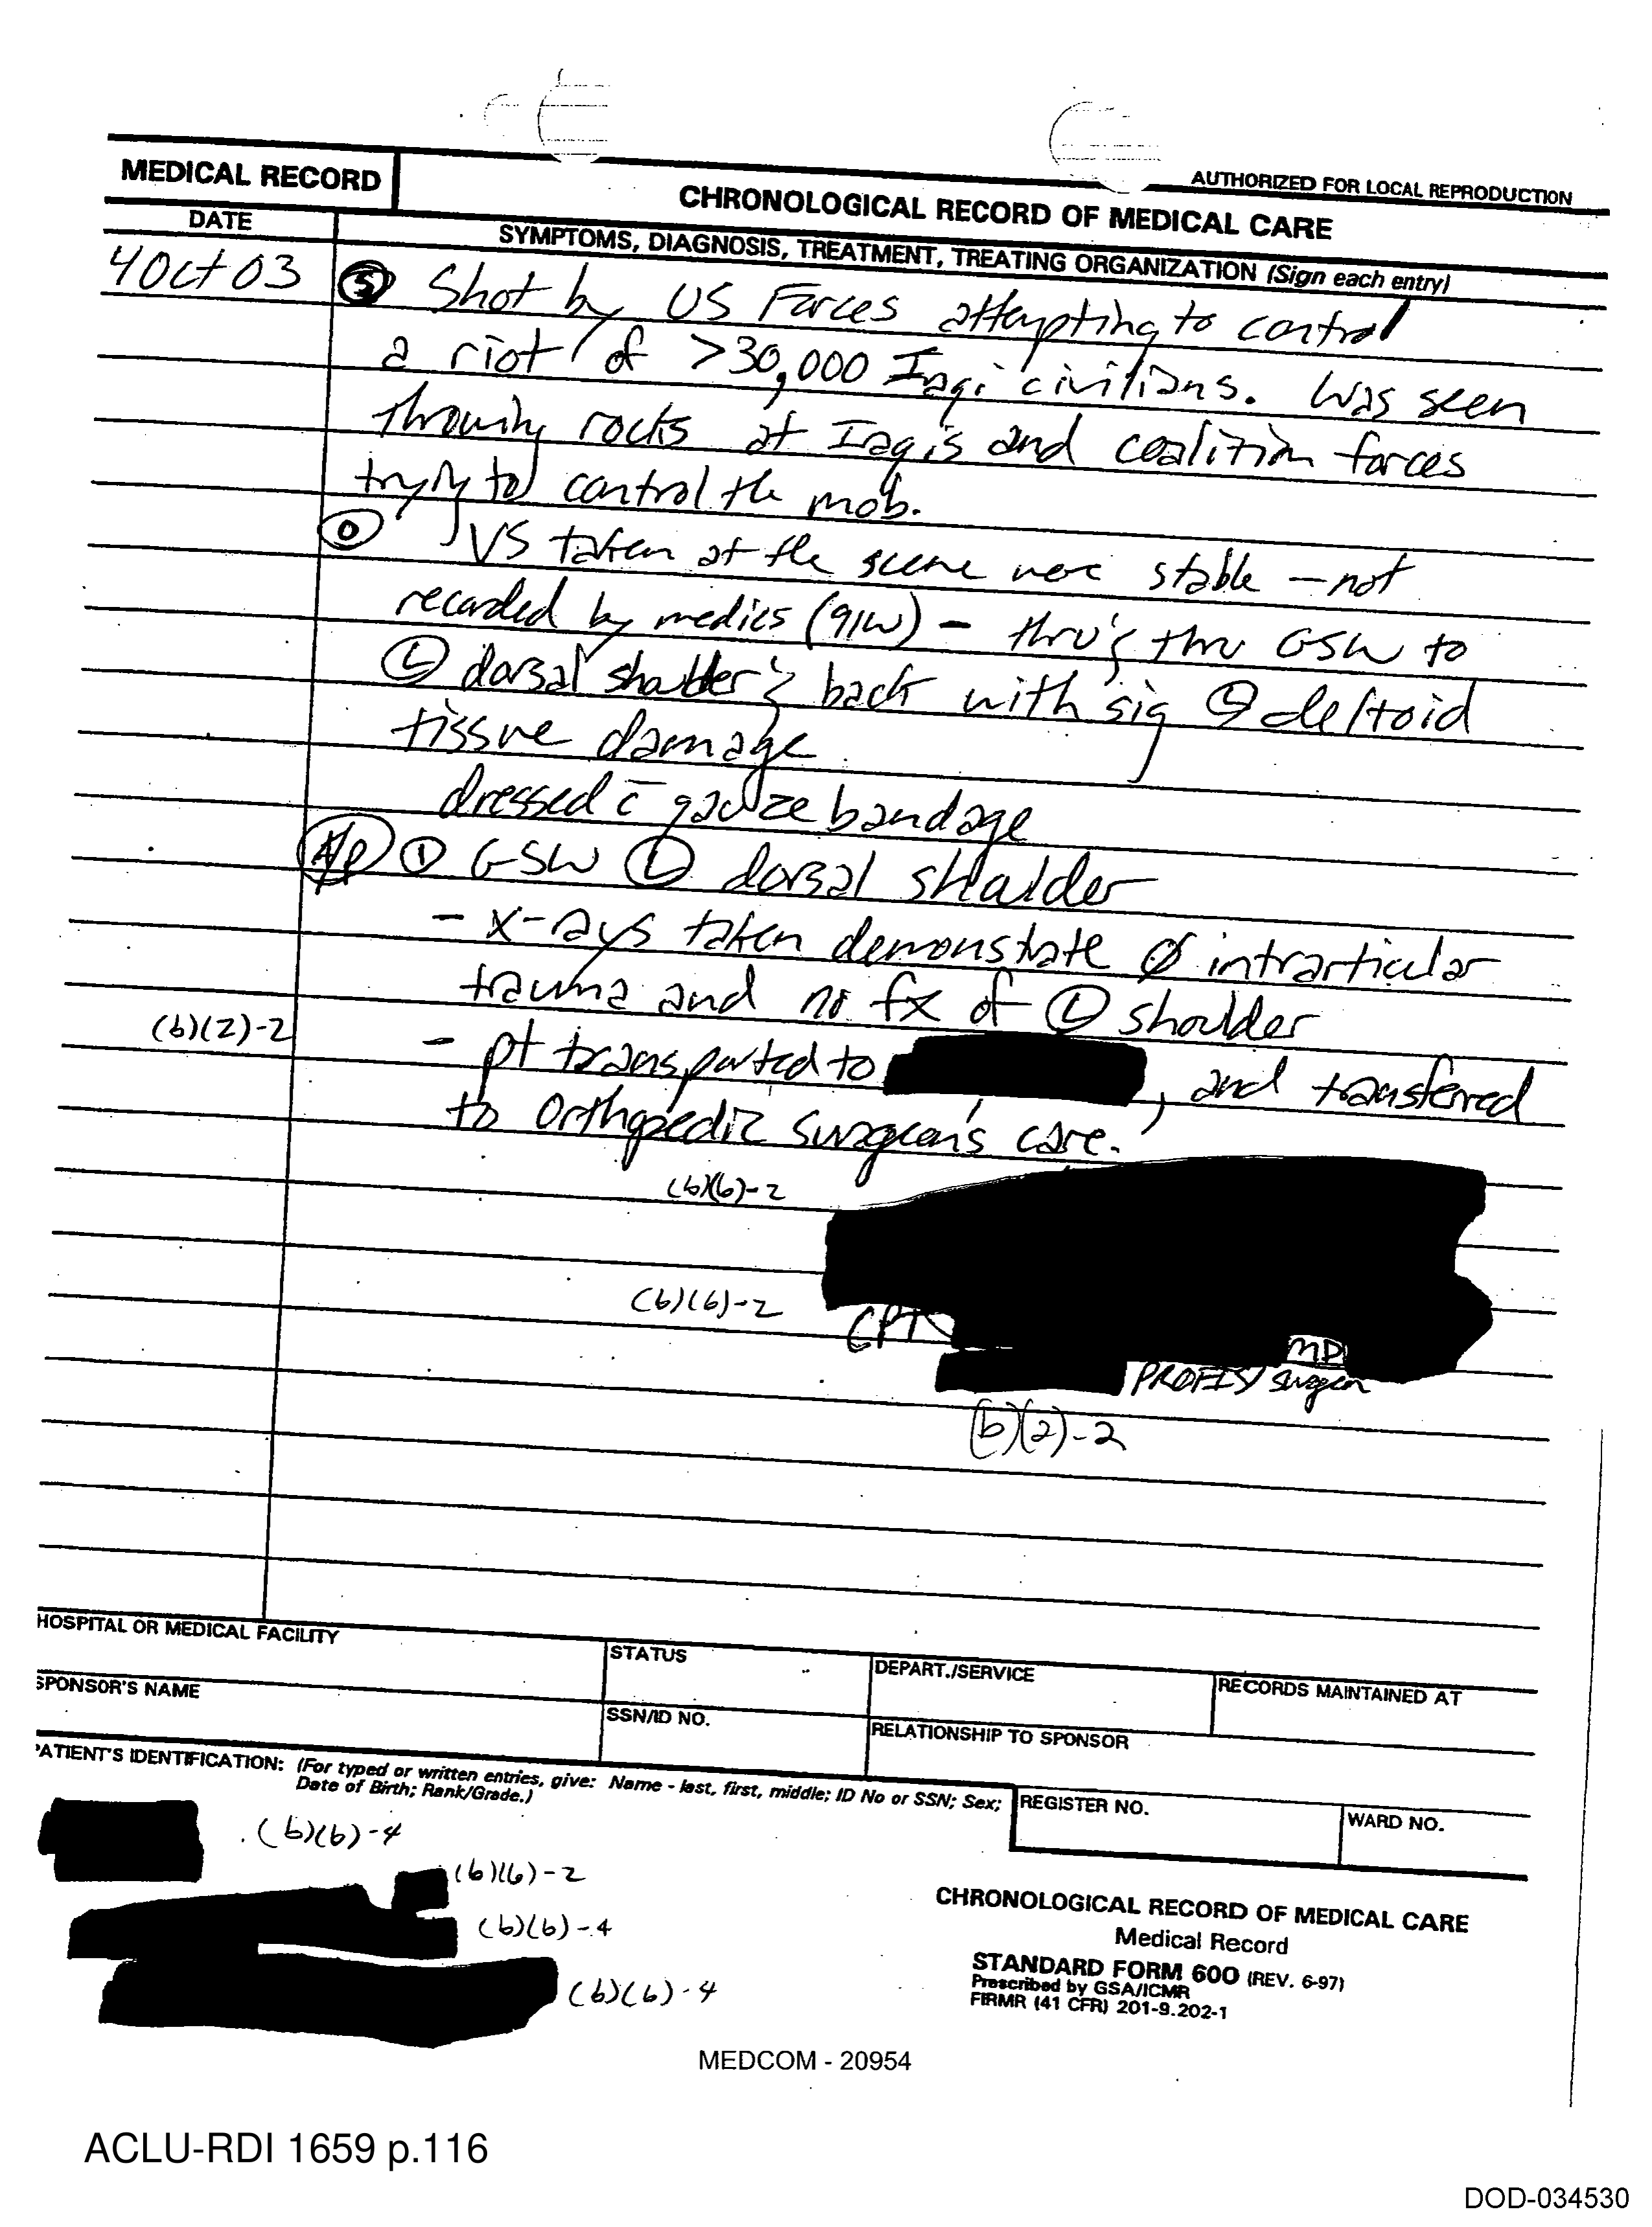 MEDICAL RECORD
CHRONOLOGICAL RECORD OF MEDICAL CARE
AUTHORIZED FOR LOCAL REPRODUCTION
DATE
SYMPTOMS, DIAGNOSIS, TREATMENT, TREATING ORGANIZATION (Sign each entry)
4 Oct 03
(S) Shot by US Forces attempting to control
a riot of >30,000 Iraqi civilians. Was seen
throwing rocks at Iraqis and coalition forces
trying to control the mob.
(O) VS taken at the scene were stable - not
recorded by medics (91W) - thru & thru GSW to
(L) dorsal shoulder & back with sig (L) deltoid
tissue damage
dressed c̄ gauze bandage
(A/P) (1) GSW (L) dorsal shoulder
- x-rays taken demonstrate Ø intrarticular
trauma and no fx of (L) shoulder
(b)(2)-2
- pt transported to , and transferred
to Orthopedic surgeon's care.
(b)(6)-2
(b)(6)-2
CPT
MD
PROFIS/ Surgeon
(b)(2)-2
HOSPITAL OR MEDICAL FACILITY
STATUS
DEPART./SERVICE
RECORDS MAINTAINED AT
SPONSOR'S NAME
SSN/ID NO.
RELATIONSHIP TO SPONSOR
PATIENT'S IDENTIFICATION: (For typed or written entries, give: Name - last, first, middle; ID No or SSN; Sex;
Date of Birth; Rank/Grade.)
REGISTER NO.
WARD NO.
(b)(6)-4
(b)(6)-2
(b)(6)-4
(b)(6)-4
CHRONOLOGICAL RECORD OF MEDICAL CARE
Medical Record
STANDARD FORM 600 (REV. 6-97)
Prescribed by GSA/ICMR
FIRMR (41 CFR) 201-9.202-1
MEDCOM - 20954
ACLU-RDI 1659 p.116
DOD-034530